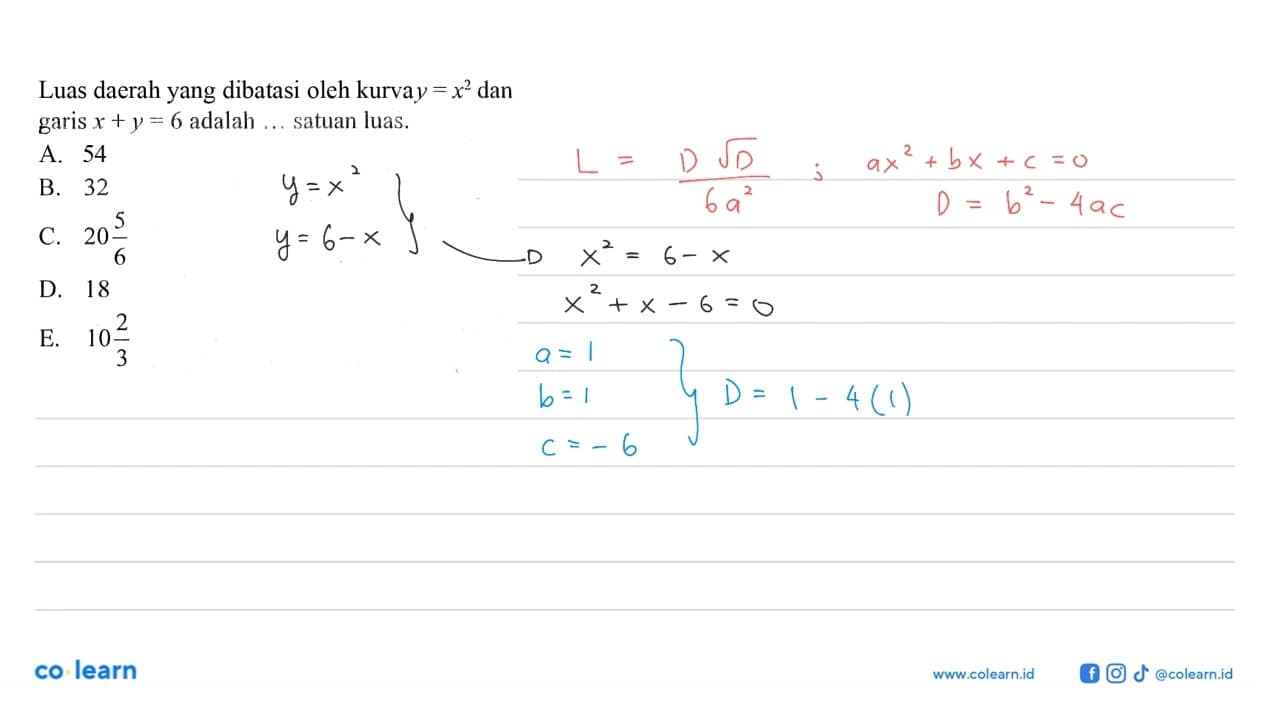 Luas daerah yang dibatasi oleh kurva y = x² dan
garis x + y = 6 adalah ... satuan luas.
A. 54
B. 32
C. 20 5/6
D. 18
E. 10 2/3
y = x²
y = 6 - x
L = D √D / 6a² ; ax² + bx + c = 0
D = b² - 4ac
x² = 6 - x
x² + x - 6 = 0
a = 1
b = 1
c = - 6
D = 1 - 4 (1)
co learn
www.colearn.id
@colearn.id